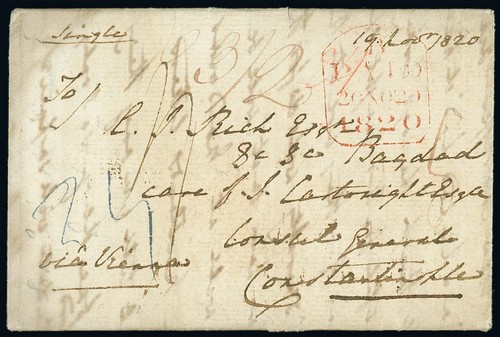 Single
19 Nov 1820
3/2
PAID
20 NO 20
1820
To
C. J. Rich Esqr
&c &c Bagdad
care of J. Cartwright Esqre
Consul General
viâ Vienna
Constantinople
24